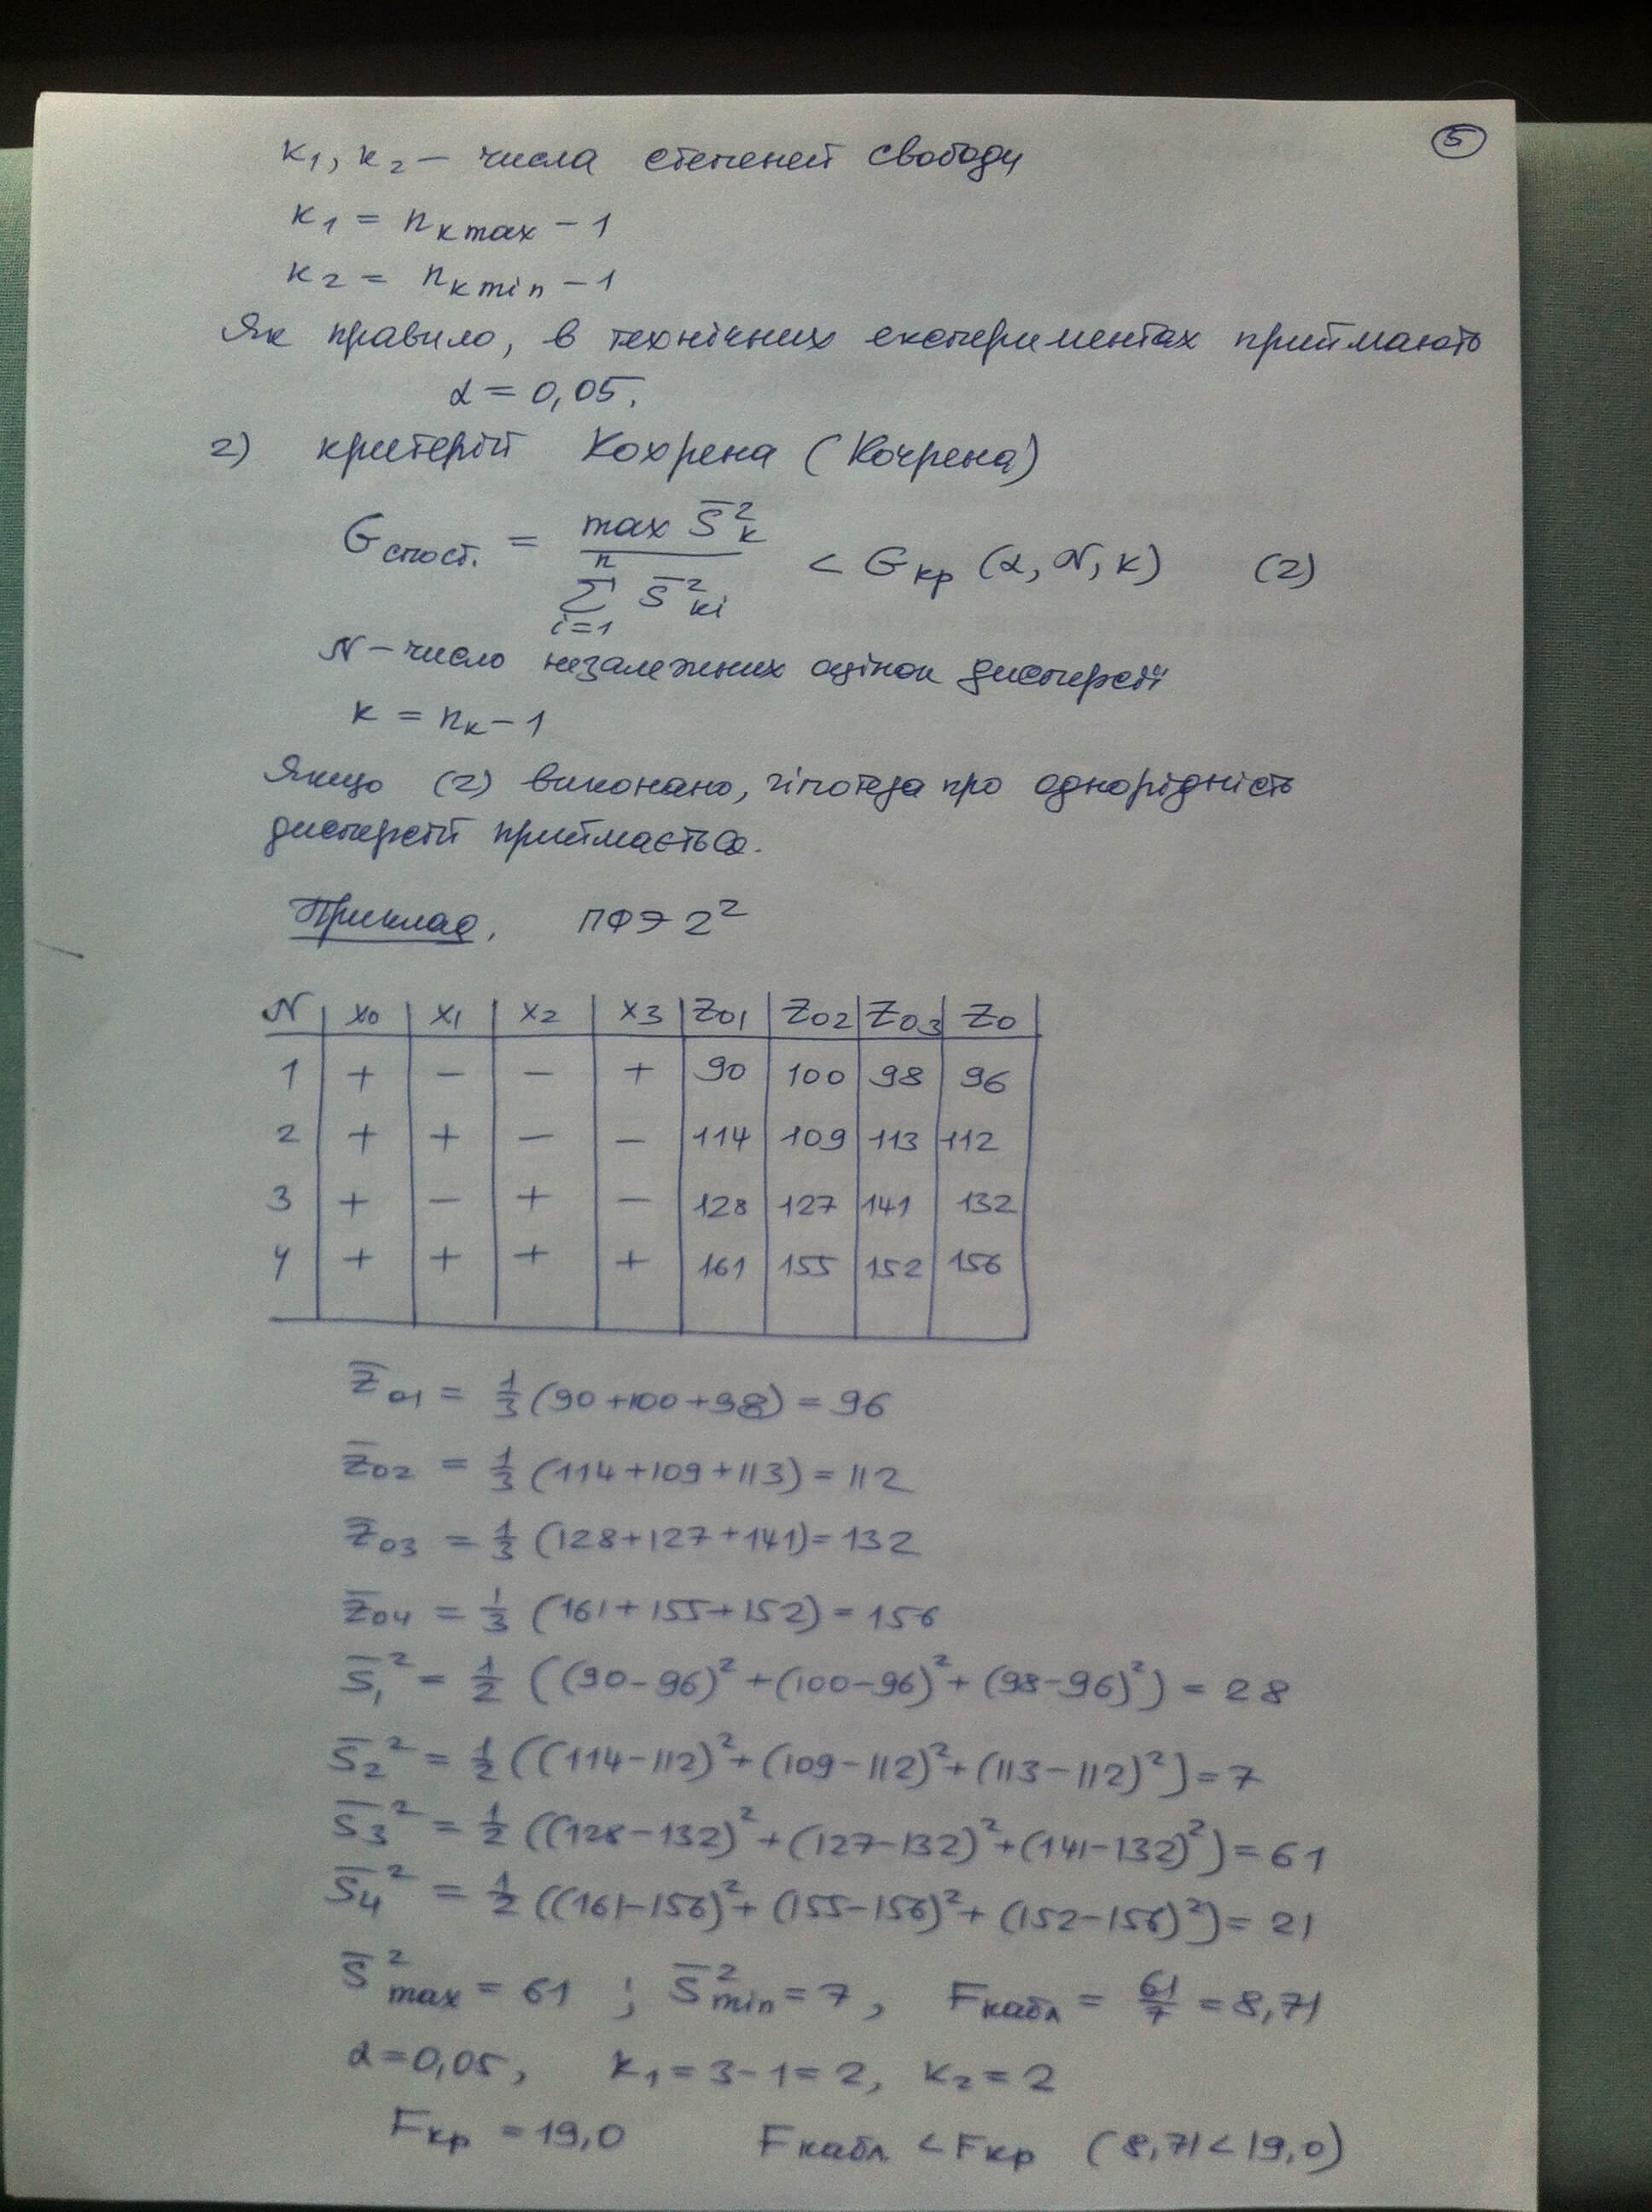 5
к₁, к₂ – числа степеней свободи
к₁ = n к max – 1
к₂ = n к min – 1
Як правило, в технічних експериментах приймають
α = 0,05.
2) критерій Кохрена (Кочрена)
Gспост. = max S̄²к / Σ(i=1..n) S̄²кi < Gкр (α, N, к) (2)
N – число незалежних оцінок дисперсії
к = nк – 1
Якщо (2) виконано, гіпотеза про однорідність
дисперсій приймається.
Приклад. ПФЭ 2²
N x₀ x₁ x₂ x₃ Z₀₁ Z₀₂ Z₀₃ Z₀
1 + – – + 90 100 98 96
2 + + – – 114 109 113 112
3 + – + – 128 127 141 132
4 + + + + 161 155 152 156
Z̄₀₁ = 1/3 (90+100+98) = 96
Z̄₀₂ = 1/3 (114+109+113) = 112
Z̄₀₃ = 1/3 (128+127+141) = 132
Z̄₀₄ = 1/3 (161+155+152) = 156
S̄₁² = 1/2 ((90–96)² + (100–96)² + (98–96)²) = 28
S̄₂² = 1/2 ((114–112)² + (109–112)² + (113–112)²) = 7
S̄₃² = 1/2 ((128–132)² + (127–132)² + (141–132)²) = 61
S̄₄² = 1/2 ((161–156)² + (155–156)² + (152–156)²) = 21
S̄²max = 61 ; S̄²min = 7, Fнабл = 61/7 = 8,71
α = 0,05, к₁ = 3–1 = 2, к₂ = 2
Fкр = 19,0 Fнабл. < Fкр (8,71 < 19,0)